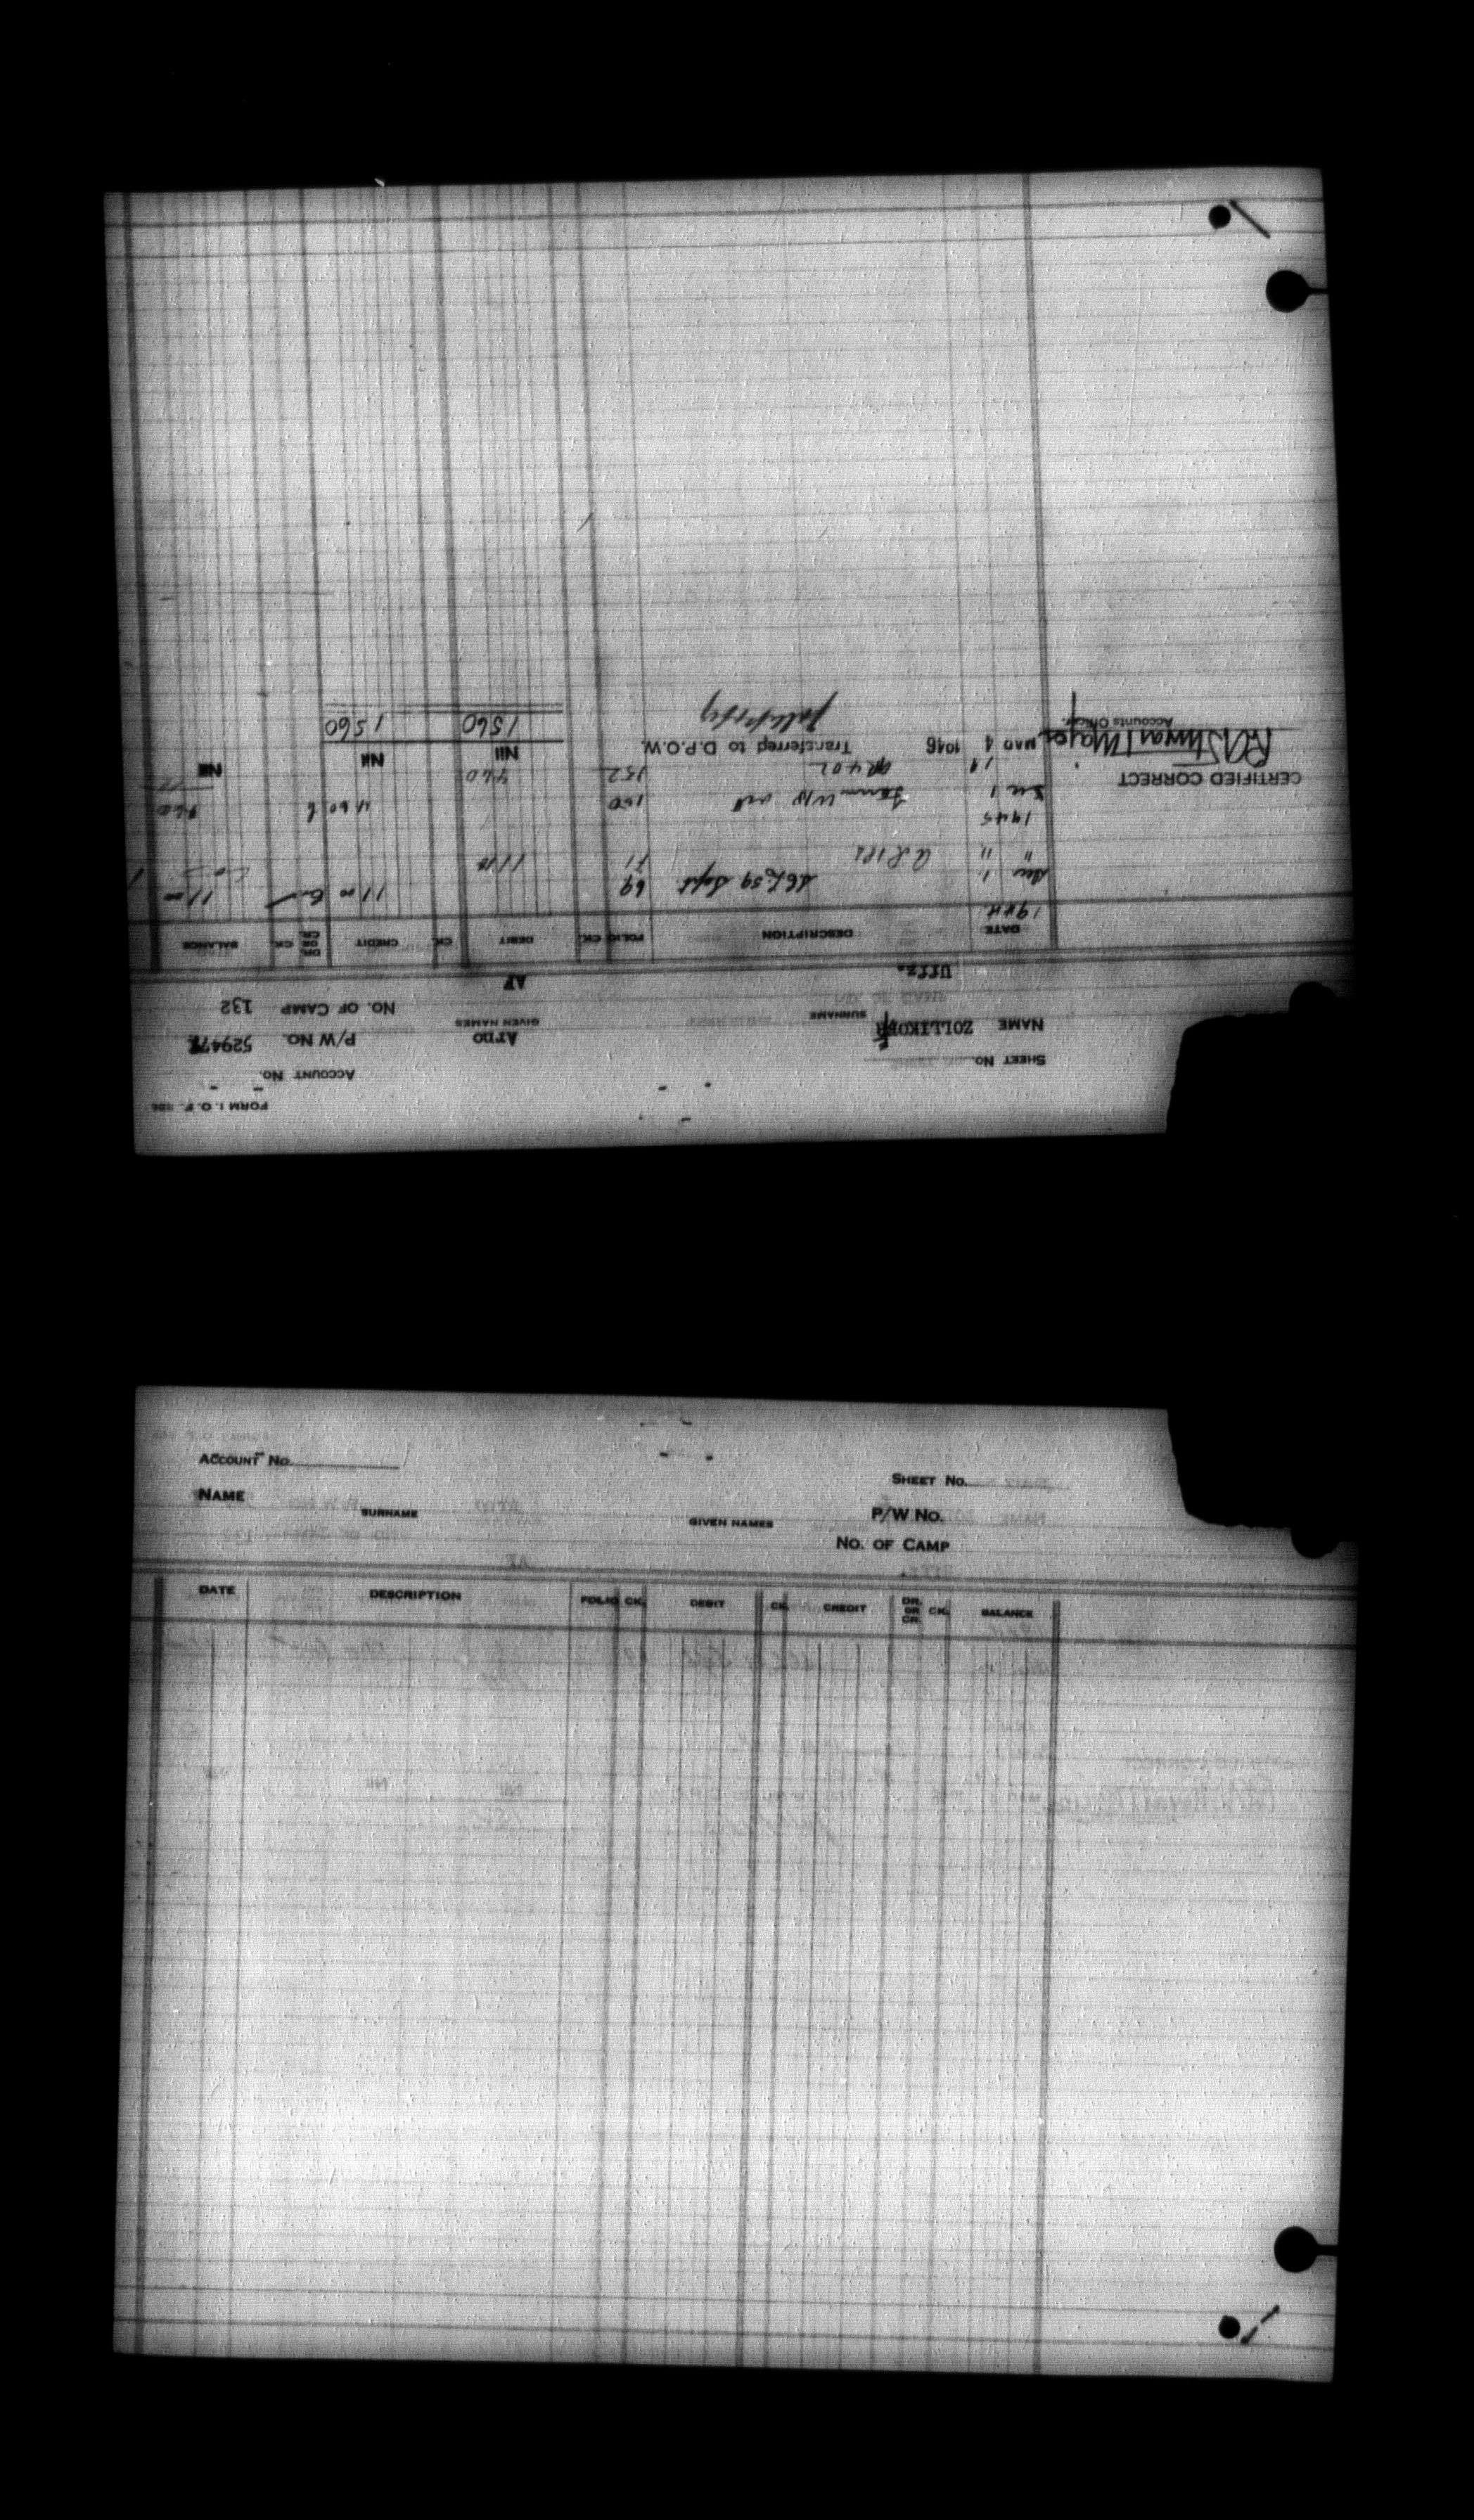 FORM I.O.F.
ACCOUNT No.
SHEET No.
P/W No. 52947
NAME ZOLLIKOFER Arno
SURNAME GIVEN NAMES
NO. OF CAMP 132
Uffz. AF
DATE DESCRIPTION FOLIO CK. DEBIT CK. CREDIT DR. OR CR. CK. BALANCE
1944
Dec 1 Sept 69 11 00 11 00
" " 71 11 00
1945
1 150 4 60 4 60
11 152 4 60 Nil
CERTIFIED CORRECT
MAR 4 1946 Transferred to D.P.O.W. Nil Nil
Major
Accounts Officer.
15 60 15 60
ACCOUNT No.
SHEET No.
NAME
SURNAME GIVEN NAMES
P/W No.
No. OF CAMP
DATE DESCRIPTION FOLIO CK. DEBIT CK. CREDIT DR. OR CR. CK. BALANCE